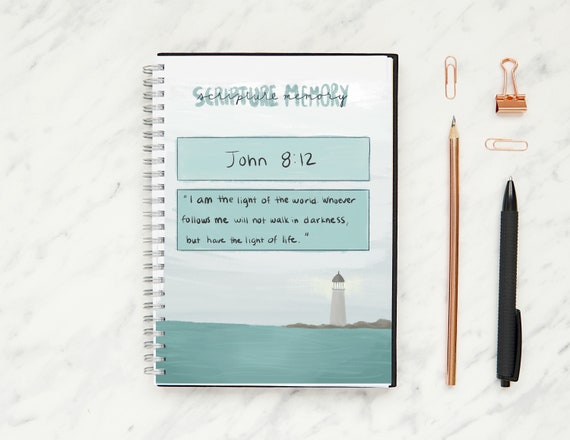 SCRIPTURE MEMORY
scripture memory
John 8:12
"I am the light of the world. Whoever
follows me will not walk in darkness,
but have the light of life."